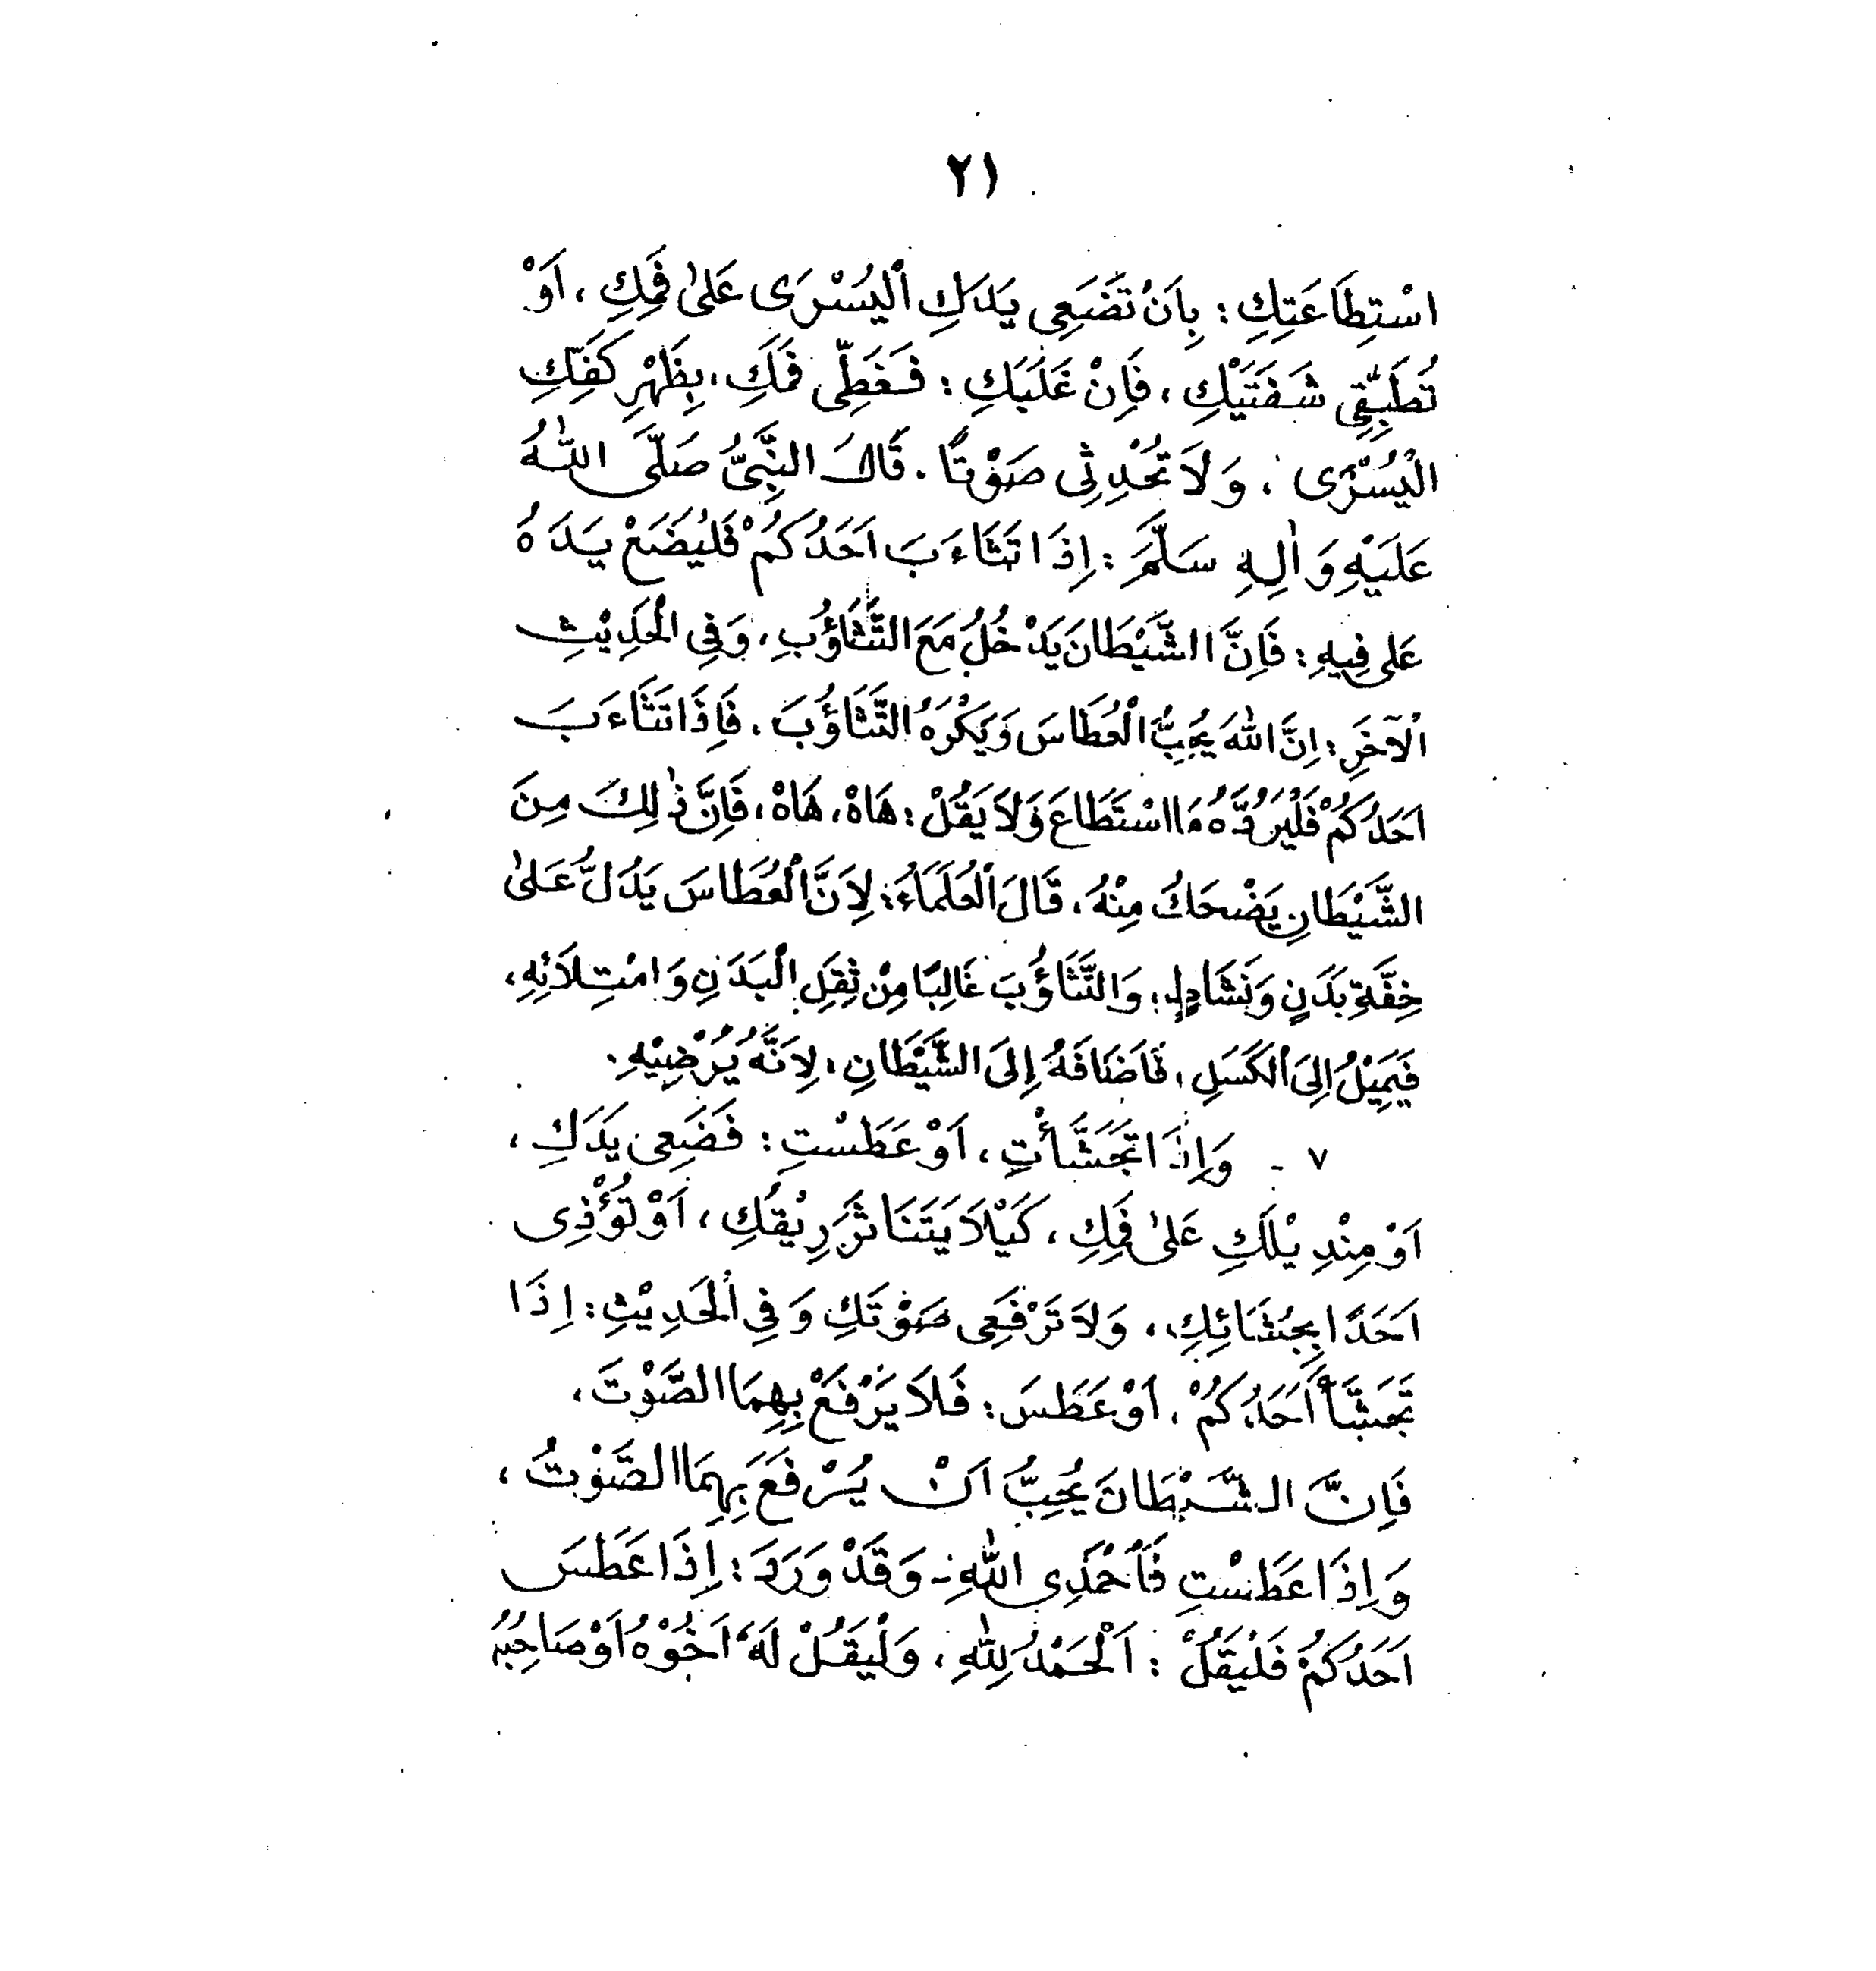 ٢١
اسْتِطَاعَتِكِ : بِاَنْ تَضَعِى يَدَكِ اْليُسْرَى عَلىٰ فَمِكِ ، اَوْ
تُطَبِّقِى شَفَتَيْكِ ، فَاِنْ غَلَبَكِ : فَغَطِّى فَمَكِ ، بِظَهْرِ كَفِّكِ
الْيُسْرَى ، وَلاَ تُحْدِثِى صَوْتًا . قَالَ النَّبِىُّ صَلَّى اللّٰهُ
عَلَيْهِ وَاٰلِهِ سَلَّمَ : إِذَا تَثَاءَبَ اَحَدُكُمْ فَلْيَضَعْ يَدَهُ
عَلى فِيهِ : فَاِنَّ الشَّيْطَانَ يَدْخُلُ مَعَ التَّثَاؤُبِ ، وَفِى الْحَدِيْثِ
اْلآخَرِ : اِنَّ اللهَ يُحِبُّ الْعُطَاسَ وَيَكْرَهُ التَّثَاؤُبَ . فَاِذَا تَثَاءَبَ
اَحَدُكُمْ فَلْيَرُدَّهُ مَا اسْتَطَاعَ وَلاَ يَقُلْ : هَاهْ ، هَاهْ ، فَاِنَّ ذٰلِكَ مِنَ
الشَّيْطَانِ يَضْحَكُ مِنْهُ ، قَالَ اْلعُلَمَاءُ : لِاَنَّ اْلعُطَاسَ يَدُلُّ عَلىٰ
خِفَّةِ بَدَنٍ وَنَشَاطٍ ، وَالتَّثَاؤُبَ غَالِبًا مِنْ ثِقَلِ الْبَدَنِ وَامْتِلاَئِهِ ،
فَيَمِيْلُ اِلىَ اْلكَسَلِ ، فَاَضَافَهُ إِلىَ الشَّيْطَانِ ، لِاَنَّهُ يُرْضِيْهِ .
٧ - وَاِذَا تَجَشَّأْتِ ، اَوْ عَطَسْتِ : فَضَعِى يَدَكِ ،
اَوْ مِنْدِيْلَكِ عَلىٰ فَمِكِ ، كَيْلاَ يَتَنَاثَرَ رِيْقُكِ ، اَوْ تُؤْذِى
اَحَدًا بِجُشَائِكِ ، وَلاَ تَرْفَعِى صَوْتَكِ وَفِى اْلحَدِيْثِ : اِذَا
تَجَشَّأَ اَحَدُكُمْ ، اَوْ عَطَسَ : فَلاَ يَرْفَعْ بِهِمَا الصَّوْتَ ،
فَاِنَّ الشَّيْطَانَ يُحِبُّ اَنْ يُرْفَعَ بِهِمَا الصَّوْتُ ،
وَاِذَا عَطَسْتِ فَاَحْمَدِى اللهَ - وَقَدْ وَرَدَ : اِذَا عَطَسَ
اَحَدُكُمْ فَلْيَقُلْ : اَلْحَمْدُ لِلّٰهِ ، وَلْيَقُلْ لَهُ اَخُوْهُ اَوْ صَاحِبُهُ